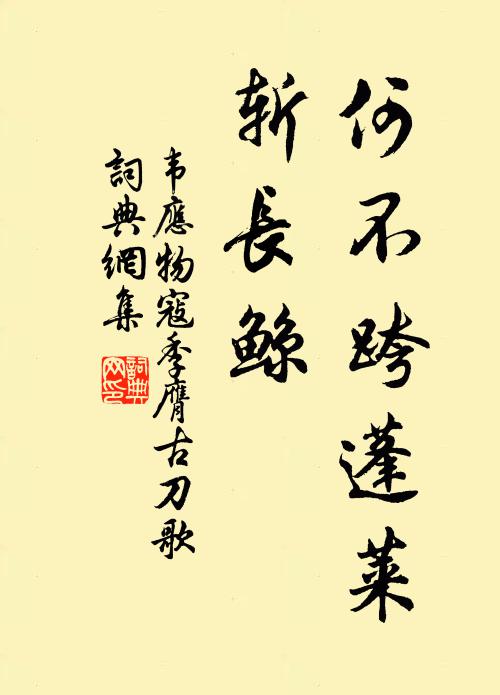 何不跨蓬莱
斩長鲸
韦應物寇季膺古刀歌
詞典網集
詞典网印